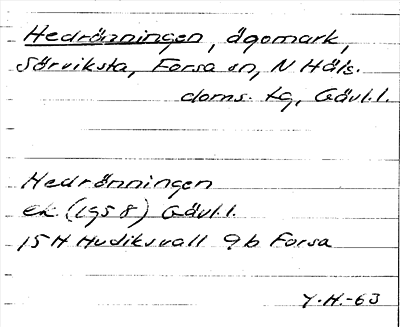 Hedrönningen, ägomark,
Sörviksta, Forsa sn, N Häls.
doms. tg, Gävl.l.
Hedrönningen
ek. (1958) Gävl.l.
15H Hudiksvall 9b Forsa
Y.H.-63